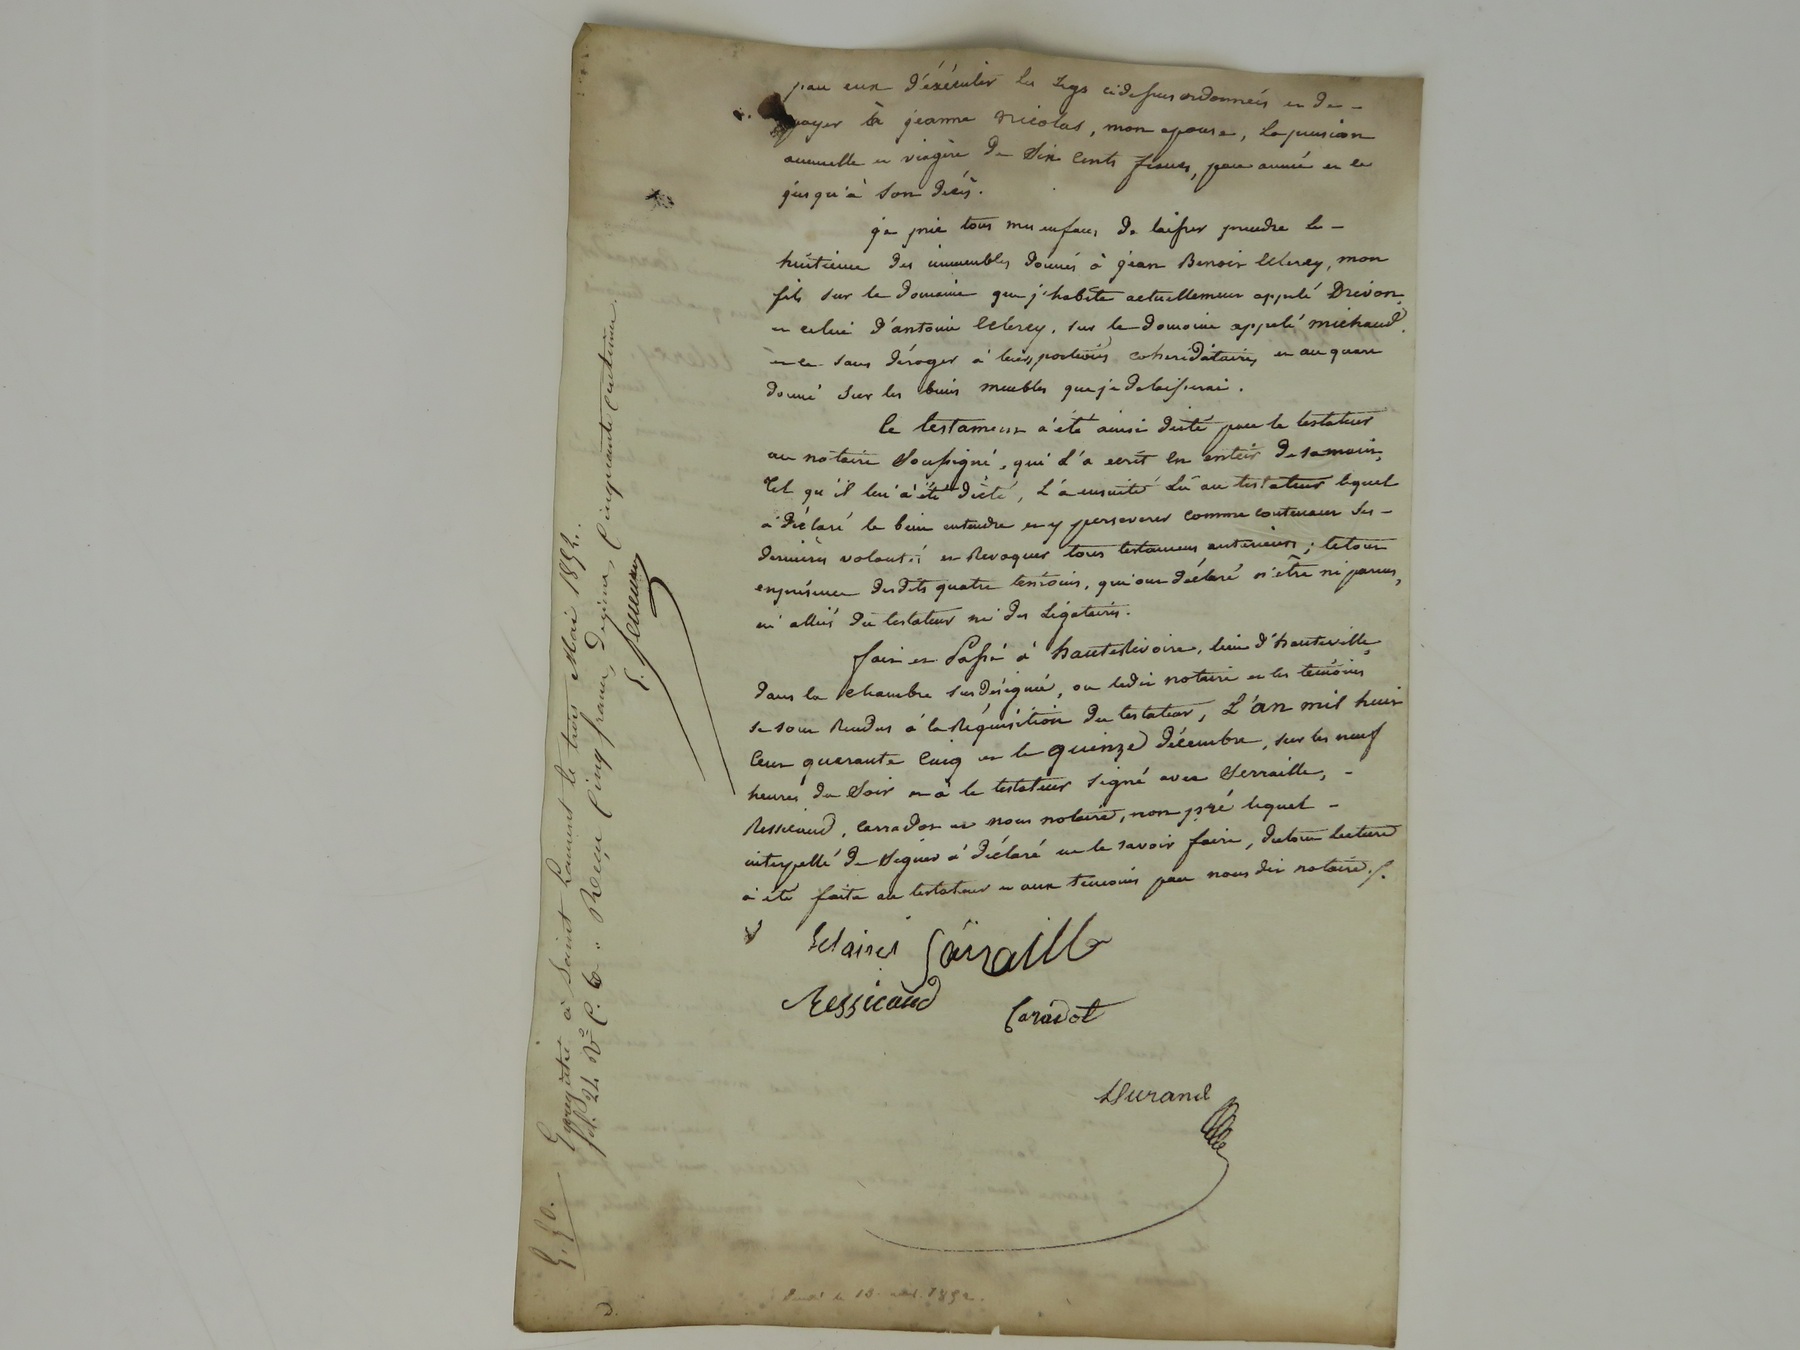 par eux d'exécuter les legs ci dessus ordonnés et de -
payer à jeanne nicolas, mon epouse, la pension
annuelle et viagère de Six Cents francs, par année et ce
jusqu'à son décès.
je prie tous mes enfans de laisser prendre le -
huitieme des immeubles donnés à jean Benoit Clerey, mon
fils sur le domaine que j'habite actuellement appelé Drivon,
et celui d'antoine Clerey, sur le domaine appelé michaud,
et ce sans déroger à leurs portions coheriditaires et au quart
donné sur les biens meubles que je delaisserai.
Ce testament a été ainsi dicté par le testateur
au notaire Soussigné, qui l'a ecrit en entier de sa main,
Tel qu'il lui a été dicté, l'a ensuite lû au testateur lequel
a déclaré le bien entendre et y perseverer comme contenant Ses -
dernières volontés et Revoquer tous testamens anterieurs; le tout
en présence desdits quatre temoins, qui ont déclaré n'être ni parens,
ni alliés du testateur ni des Légataires.
fait et Passé à hauterivoire, lieu d'hauteville,
dans la chambre sus désignée, ou ledit notaire et les temoins
se sont Rendus à la Réquisition du testateur, L'an mil huit
Cent quarante Cinq et le quinze décembre, sur les neuf
heures du Soir et a le testateur signé avec Serraille, -
Ressicaud, Carradot et nous notaire, non pré lequel -
interpellé de Signer a déclaré ne le savoir faire, du tout lecture
a été faite au testateur et aux temoins par nous dit notaire./.
Sarraille
Ressicaud Caradot
Durand
Enregistré à Saint Laurent le trois Mai 1852.
fol. 24 V° C. 6. Reçu Cinq francs, Décime, Cinquante Centimes.
5. 50.